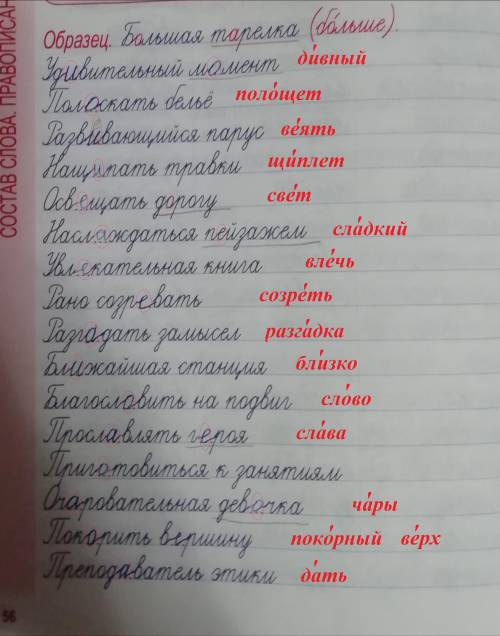 СОСТАВ СЛОВА. ПРАВОПИСАН
Образец. Большая тарелка (бо́льше).
Удивительный момент ди́вный
Полоскать бельё поло́щет
Развевающийся парус ве́ять
Нащипать травки щи́плет
Освещать дорогу све́т
Наслаждаться пейзажем сла́дкий
Увлекательная книга вле́чь
Рано созревать созре́ть
Разгадать замысел разга́дка
Ближайшая станция бли́зко
Благословить на подвиг сло́во
Прославлять героя сла́ва
Приготовиться к занятиям
Очаровательная девочка ча́ры
Покорить вершину поко́рный ве́рх
Преподаватель этики да́ть
56